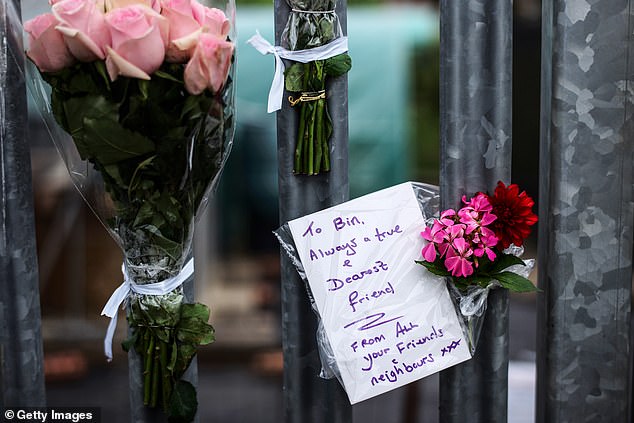 To Bin,
Always a true
&
Dearest
friend
From All
your Friends
&
neighbours xxx
Getty Images